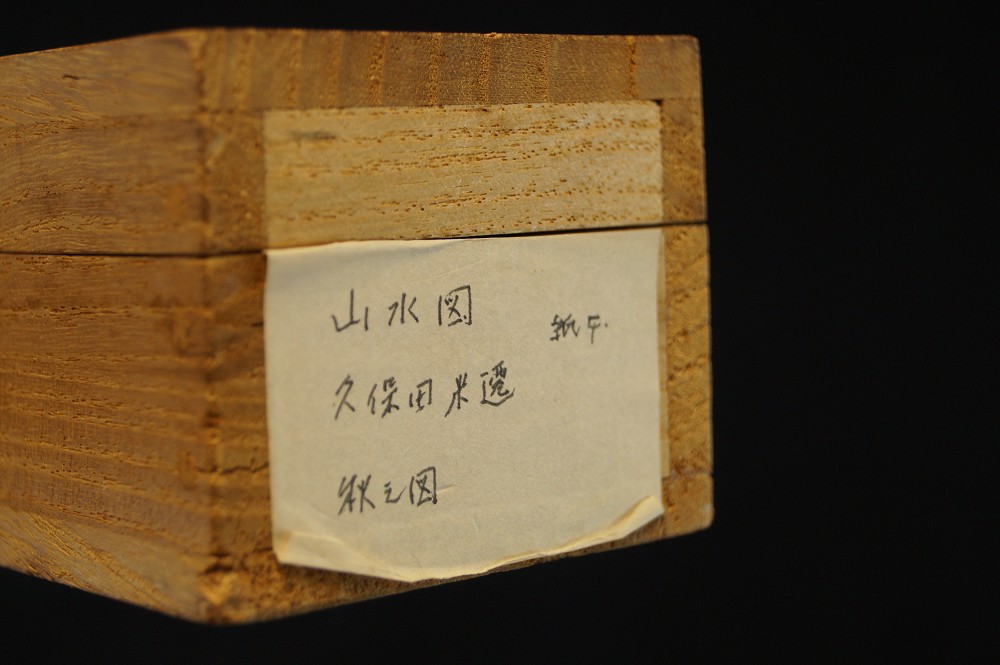 山水図
紙本
久保田米遷
秋之図